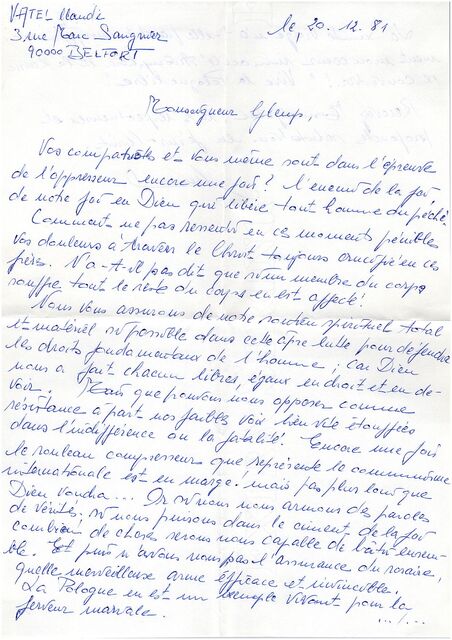 VATEL Claude
3 rue Marc Sangnier
90000 BELFORT
le, 20.12.81
Monseigneur Glemp,
Vos compatriotes et vous même sont dans l'épreuve
de l'oppresseur encore une fois? l'ennemi de la foi,
de notre foi en Dieu qui libère tout homme du péché.
Comment ne pas ressentir en ces moments pénibles
vos douleurs à travers le Christ toujours crucifié en ces
frères. N'a-t-il pas dit que si un membre du corps
souffre tout le reste du corps en est affecté!
Nous vous assurons de notre soutien spirituel total
et matériel si possible dans cette âpre lutte pour défendre
les droits fondamentaux de l'homme; car Dieu
nous a fait chacun libres, égaux en droit et en de-
voir. Mais que pouvons nous opposer comme
résistance à part nos faibles voix bien vite étouffées
dans l'indifférence ou la fatalité. Encore une fois
le rouleau compresseur que représente le communisme
internationale est en marge. mais pas plus loin que
Dieu voudra... Or si nous nous armons des paroles
de vérités. si nous puisons dans le ciment de la foi
combien de choses serons nous capable de bâtir ensem-
ble. Et puis n'avons nous pas l'assurance du rosaire,
quelle merveilleuse arme efficace et invincible.
La Pologne en est un exemple vivant pour la
ferveur mariale.
.../...